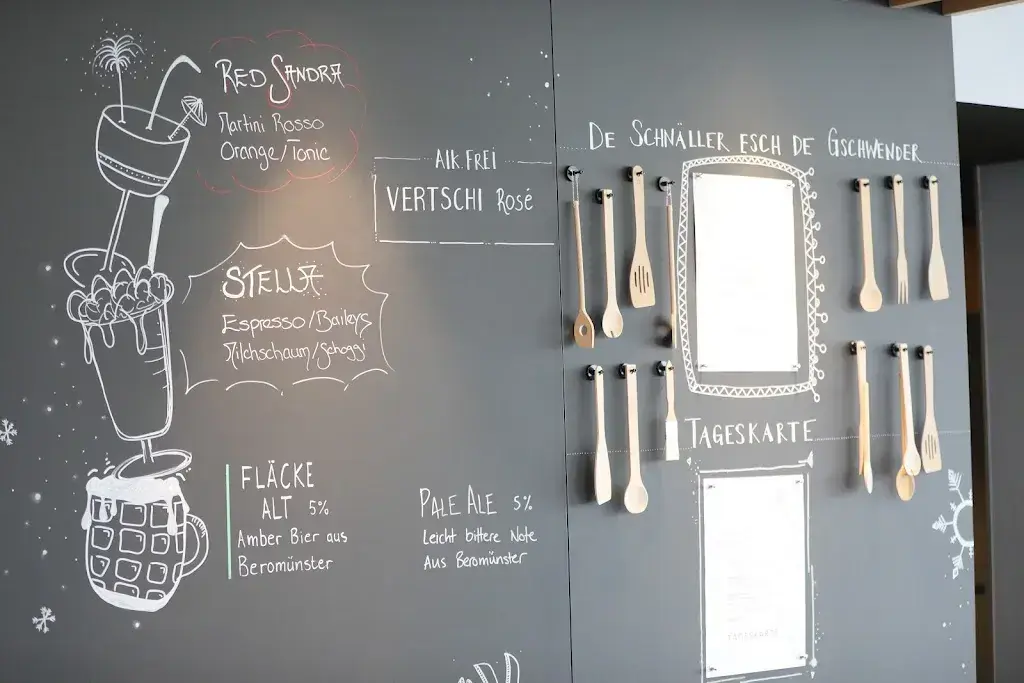 RED SANDRA
Martini Rosso
Orange/Tonic
Alk. FREI
VERTSCHI Rosé
STELLA
Espresso/Baileys
Milchschaum/Schoggi
FLÄCKE
ALT 5%
Amber Bier aus
Beromünster
PALE ALE 5%
Leicht bittere Note
Aus Beromünster
DE SCHNÄLLER ESCH DE GSCHWENDER
TAGESKARTE